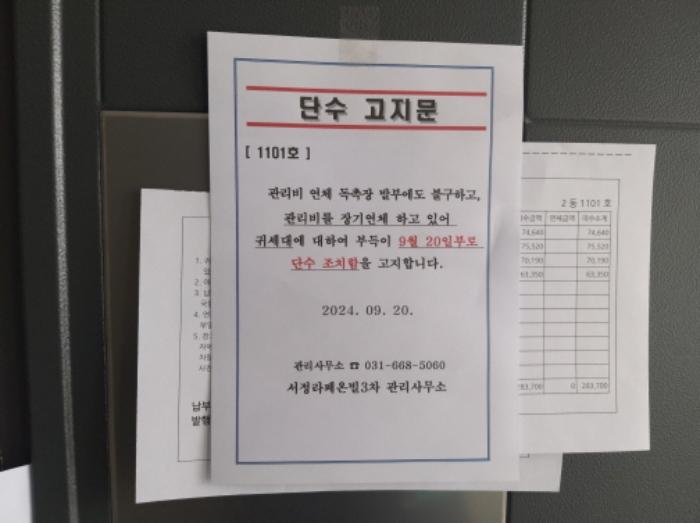 단수 고지문
[ 1101호 ]
관리비 연체 독촉장 발부에도 불구하고,
관리비를 장기연체 하고 있어
귀세대에 대하여 부득이 9월 20일부로
단수 조치함을 고지합니다.
2024. 09. 20.
관리사무소 ☎ 031-668-5060
서정라페온빌3차 관리사무소
1.
2.
3. 납
4. 연
5.
납부
발행
2동 1101 호
연체금액 미수소계
74,640 74,640
75,520 75,520
70,190 70,190
63,350 63,350
283,700 0 283,700